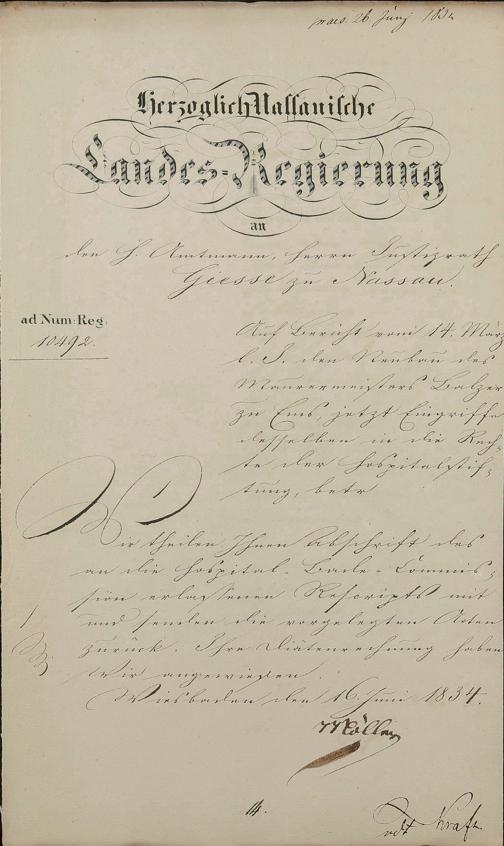 praes. 26 Juny 1834
Herzoglich Nassauische
Landes=Regierung
an
den H. Amtmann, Herrn Justizrath
Giesse zu Nassau.
ad Num: Reg.
10492.
Auf Bericht vom 14. März
l. J. den Neubau des
Maurermeisters Balzer
zu Ems, jetzt Eingriffe
desselben in die Rech-
te der Hospitalstif-
tung, betr
Wir theilen Ihnen Abschrift des
an die Hospital-Bade-Commis-
sion erlassenen Rescripts mit
und senden die vorgelegten Acten
zurück. Ihre Diätenrechnung haben
Wir angewiesen.
Wiesbaden den 16 Juni 1834.
Möller
14.
vdt Kraft